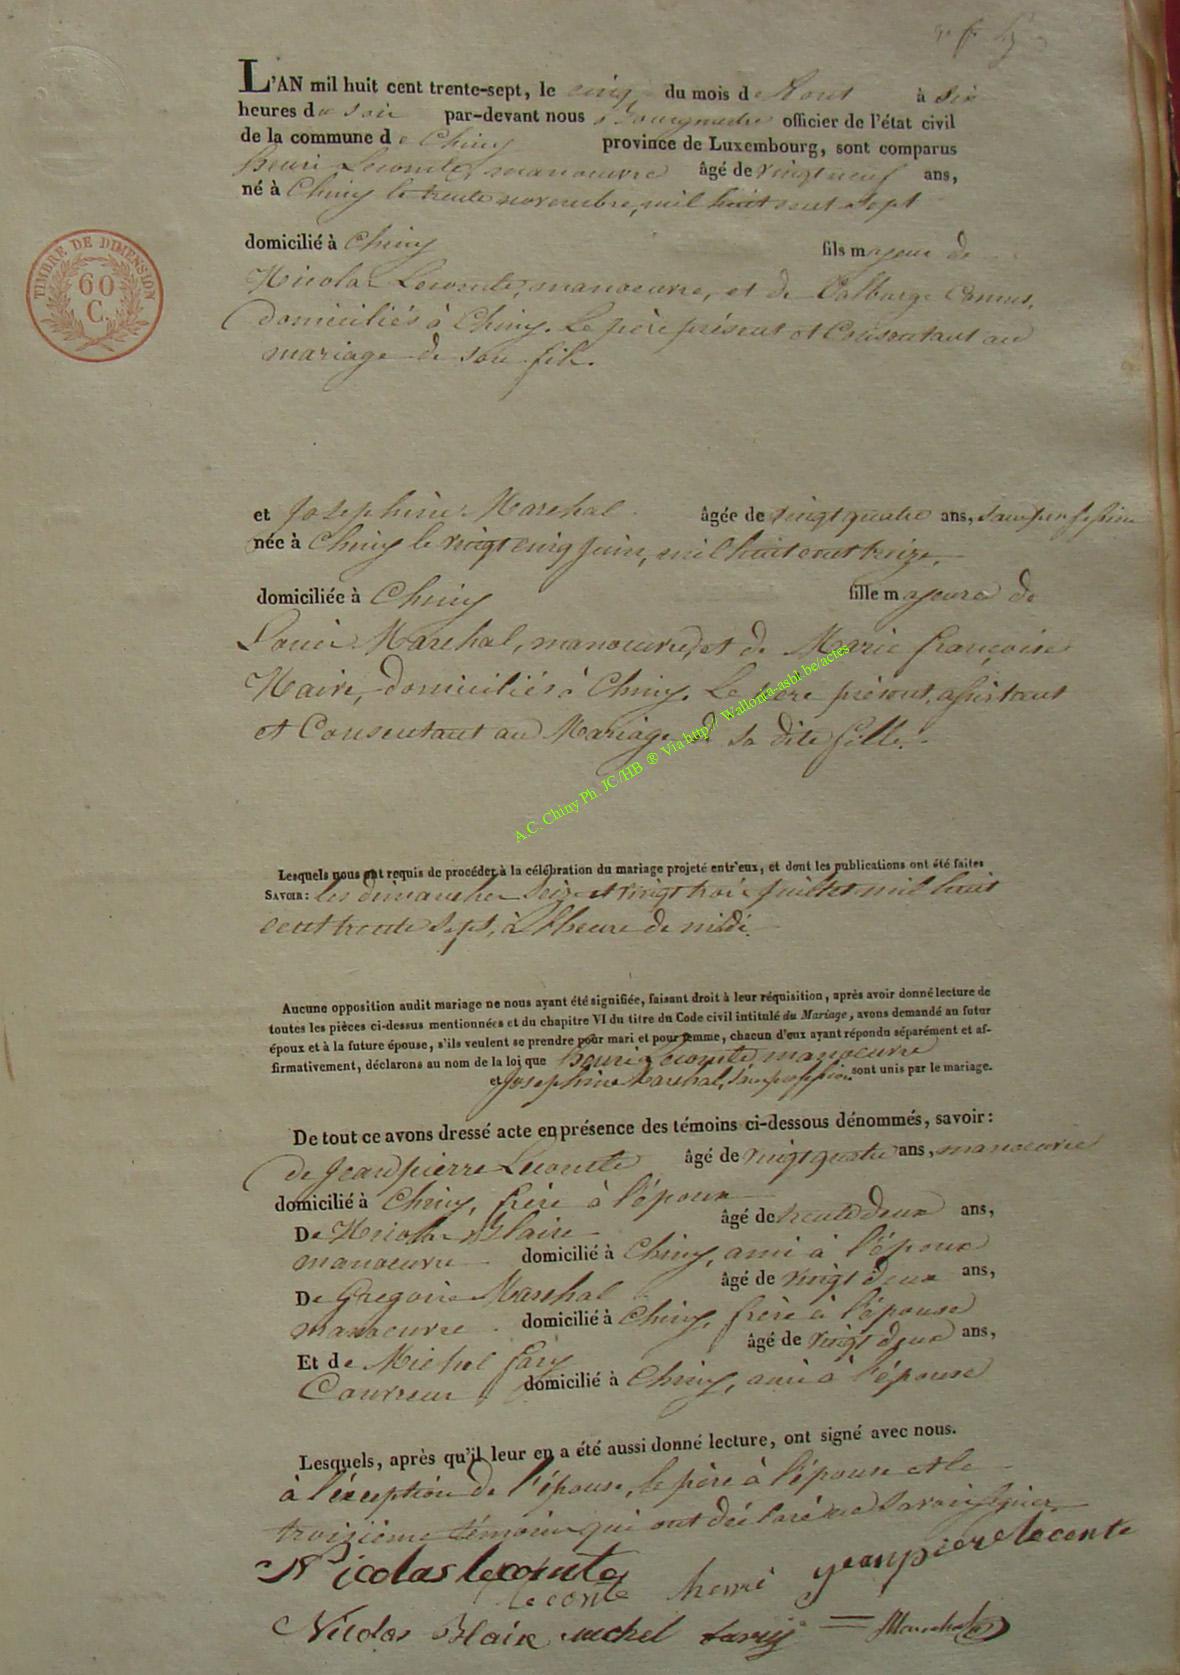 L'AN mil huit cent trente-sept, le cinq du mois de Aout à six
heures du soir par-devant nous Bourgmestre officier de l'état civil
de la commune de Chiny province de Luxembourg, sont comparus
henri Lecomte, manoeuvre âgé de vingt neuf ans,
né à Chiny le trente novembre, mil huit cent sept
domicilié à Chiny fils majeur de
Nicolas Lecomte, manoeuvre, et de Valburge Camus,
domiciliés à Chiny. Le père présent et Consentant au
mariage de son fils.
TIMBRE DE DIMENSION
60
C.
et Josephine Marchal âgée de vingt quatre ans, sans profession
née à Chiny le vingt cinq juin, mil huit cent treize,
domiciliée à Chiny fille majeure de
Louis Marchal, manoeuvre, et de Marie françoise
Maire, domiciliés à Chiny. Le père présent, assistant
et Consentant au Mariage de sa dite fille.
A.C. Chiny Ph. JC/HB ® Via http:// Wallonia-asbl.be/actes
Lesquels nous ont requis de procéder à la célébration du mariage projeté entr'eux, et dont les publications ont été faites
SAVOIR: les dimanches seize et vingt trois juillet mil huit
cent trente sept, à l'heure de midi.
Aucune opposition audit mariage ne nous ayant été signifiée, faisant droit à leur réquisition, après avoir donné lecture de
toutes les pièces ci-dessus mentionnées et du chapitre VI du titre du Code civil intitulé du Mariage, avons demandé au futur
époux et à la future épouse, s'ils veulent se prendre pour mari et pour femme, chacun d'eux ayant répondu séparément et af-
firmativement, déclarons au nom de la loi que henri Lecomte manoeuvre
et Josephine Marchal, sans profession sont unis par le mariage.
De tout ce avons dressé acte en présence des témoins ci-dessous dénommés, savoir:
de Jean pierre Lecomte âgé de vingt quatre ans, manoeuvre
domicilié à Chiny, frère à l'époux
De Nicolas Blaise âgé de trente deux ans,
manoeuvre domicilié à Chiny, ami à l'époux
De Gregoire Marchal âgé de vingt deux ans,
manoeuvre domicilié à Chiny, frère à l'épouse
Et de Michel âgé de vingt deux ans,
Couvreur domicilié à Chiny, ami à l'épouse
Lesquels, après qu'il leur en a été aussi donné lecture, ont signé avec nous.
à l'exception de l'épouse, le père à l'épouse et le
troisième témoin qui ont déclaré ne savoir signer
Nicolas lecomte
lecomte henri jean pierre lecomte
Nicolas Blaise michel